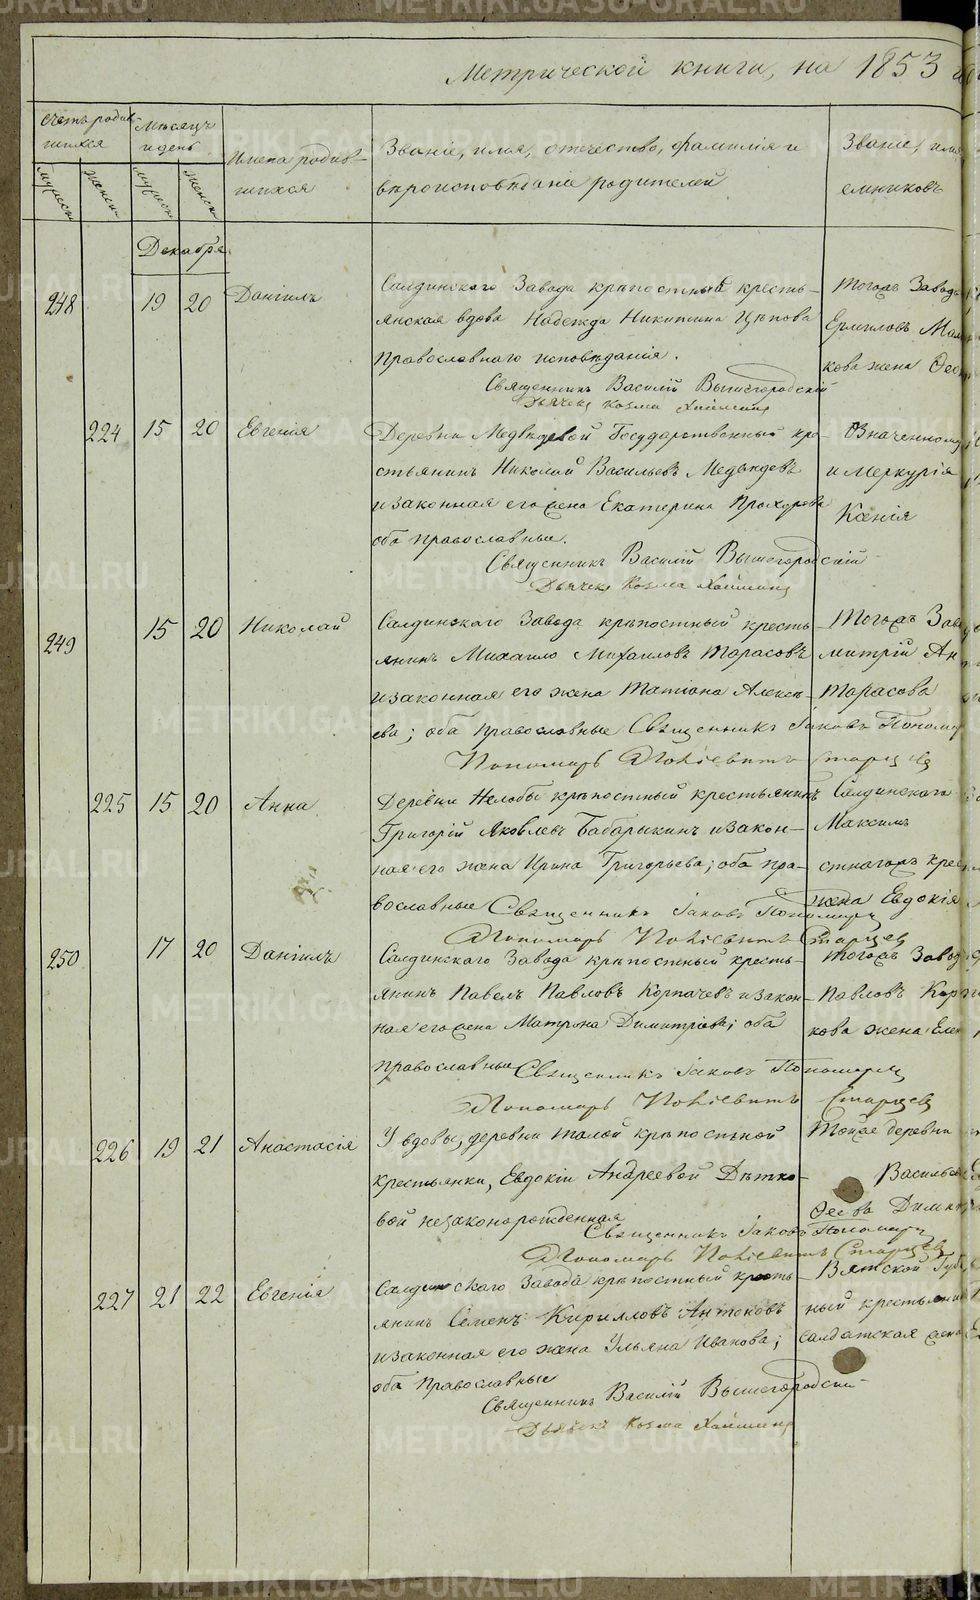 Метрической книги, на 1853
Счетъ родив-
шихся
Мѣсяцъ
и день
Имена родив-
шихся
Званіе, имя, отечество, фамилія и
вѣроисповѣданіе родителей
Званіе, имя
емниковъ
мужеск
женск
мужеск
женск
Декабря
248 19 20 Даніилъ
Салдинскаго Завода крѣпостная кресть-
янская вдова Надежда Никитина Цѣпова
православнаго исповѣданія.
Священникъ Василій Вышегородскій
Дьячекъ Козма Хаймина
Тогожъ Завода
Ермиловъ
кова жена
224 15 20 Евгенія
Деревни Медвѣдевой Государственный кре-
стьянинъ Николай Васильевъ Медвѣдевъ
и законная его жена Екатерина Прохорова
оба православные.
Священникъ Василій Вышегородскій
Дьячекъ Козма Хаймина
Означенному
и Меркурія
Ксенія
249 15 20 Николай
Салдинскаго Завода крѣпостный кресть-
янинъ Михаило Михаиловъ Тарасовъ
и законная его жена Татіана Алексѣ-
ева; оба православные Священникъ Іаковъ Пономар
Пономарь Старцев
Тогожъ Заво
митрій Ан
Тарасова
225 15 20 Анна
Деревни Нелобы крѣпостный крестьянинъ
Григорій Яковлевъ Бабарыкинъ и закон-
ная его жена Ирина Григорьева; оба пра-
вославные Священникъ Іаковъ Пономарь
Пономарь Старцев
Салдинскаго
Максимъ
стнагожъ крес
жена Евдокія
250 17 20 Даніилъ
Салдинскаго Завода крѣпостный кресть-
янинъ Павелъ Павловъ Корпачевъ и закон-
ная его жена Матрона Димитріева; оба
православные Священникъ Іаковъ Пономарь
Пономарь Старцев
Тогожъ Завод
Павловъ Кор
кова жена Елен
226 19 21 Анастасія
У вдовы, деревни Талой крѣпостной
крестьянки, Евдокіи Андреевой Дѣтко-
вой незаконорожденная
Священникъ Іаковъ Пономарь
Пономарь Старцев
Тойже деревни
Васильев
Димит
227 21 22 Евгенія
Салдинскаго Завода крѣпостный кресть-
янинъ Семенъ Кирилловъ Антоновъ
и законная его жена Ульяна Иванова;
оба православные
Священникъ Василій Вышегородскій
Дьячекъ Козма Хаймина
Вятской Губ
ный крестьянин
салдатская жена
METRIKI.GASO-URAL.RU